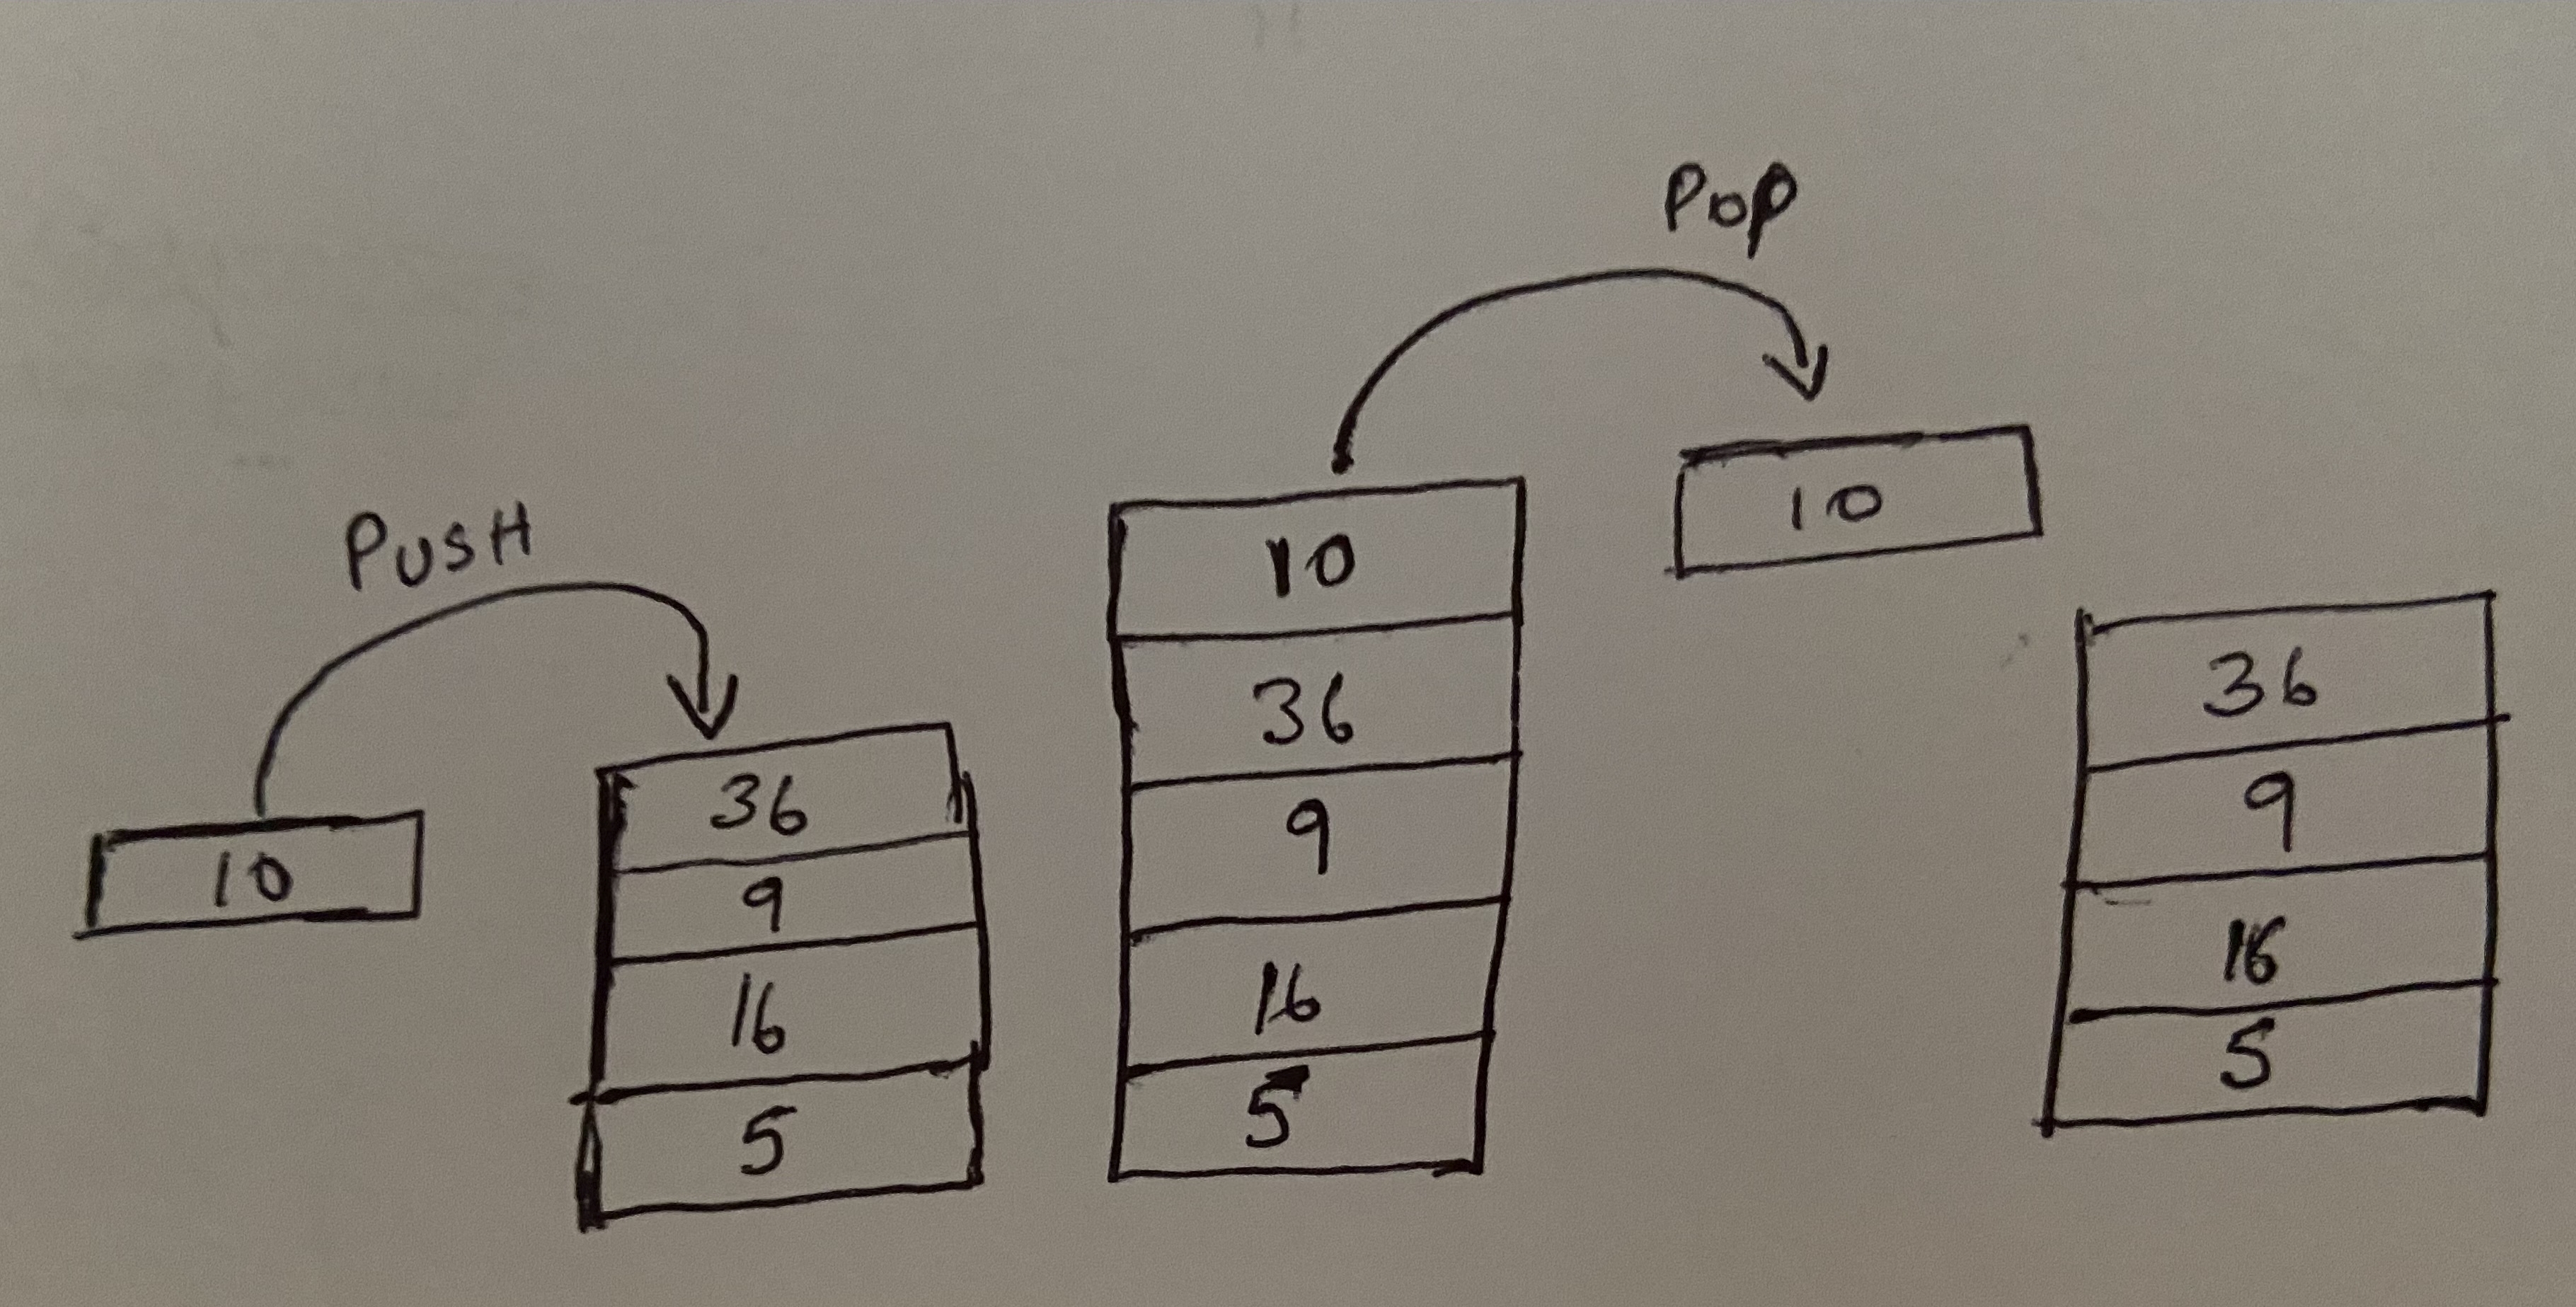 PUSH
10
36
9
16
5
10
36
9
16
5
POP
10
36
9
16
5